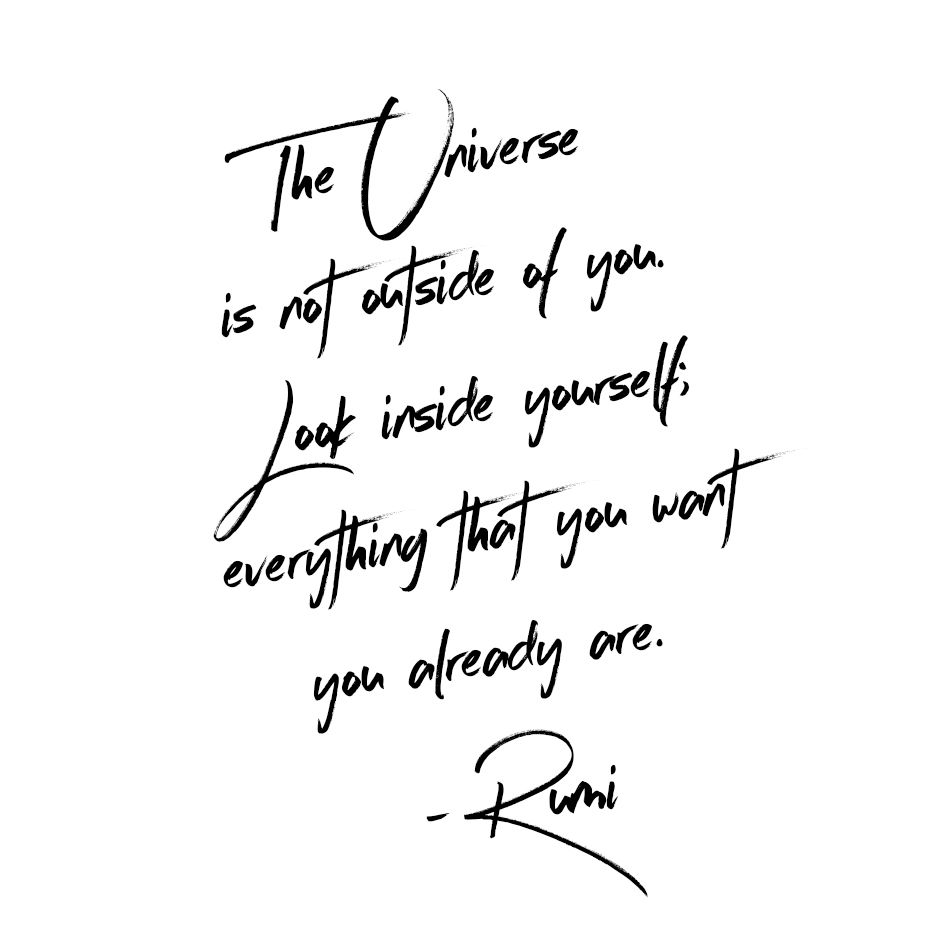 The Universe
is not outside of you.
Look inside yourself;
everything that you want
you already are.
-Rumi